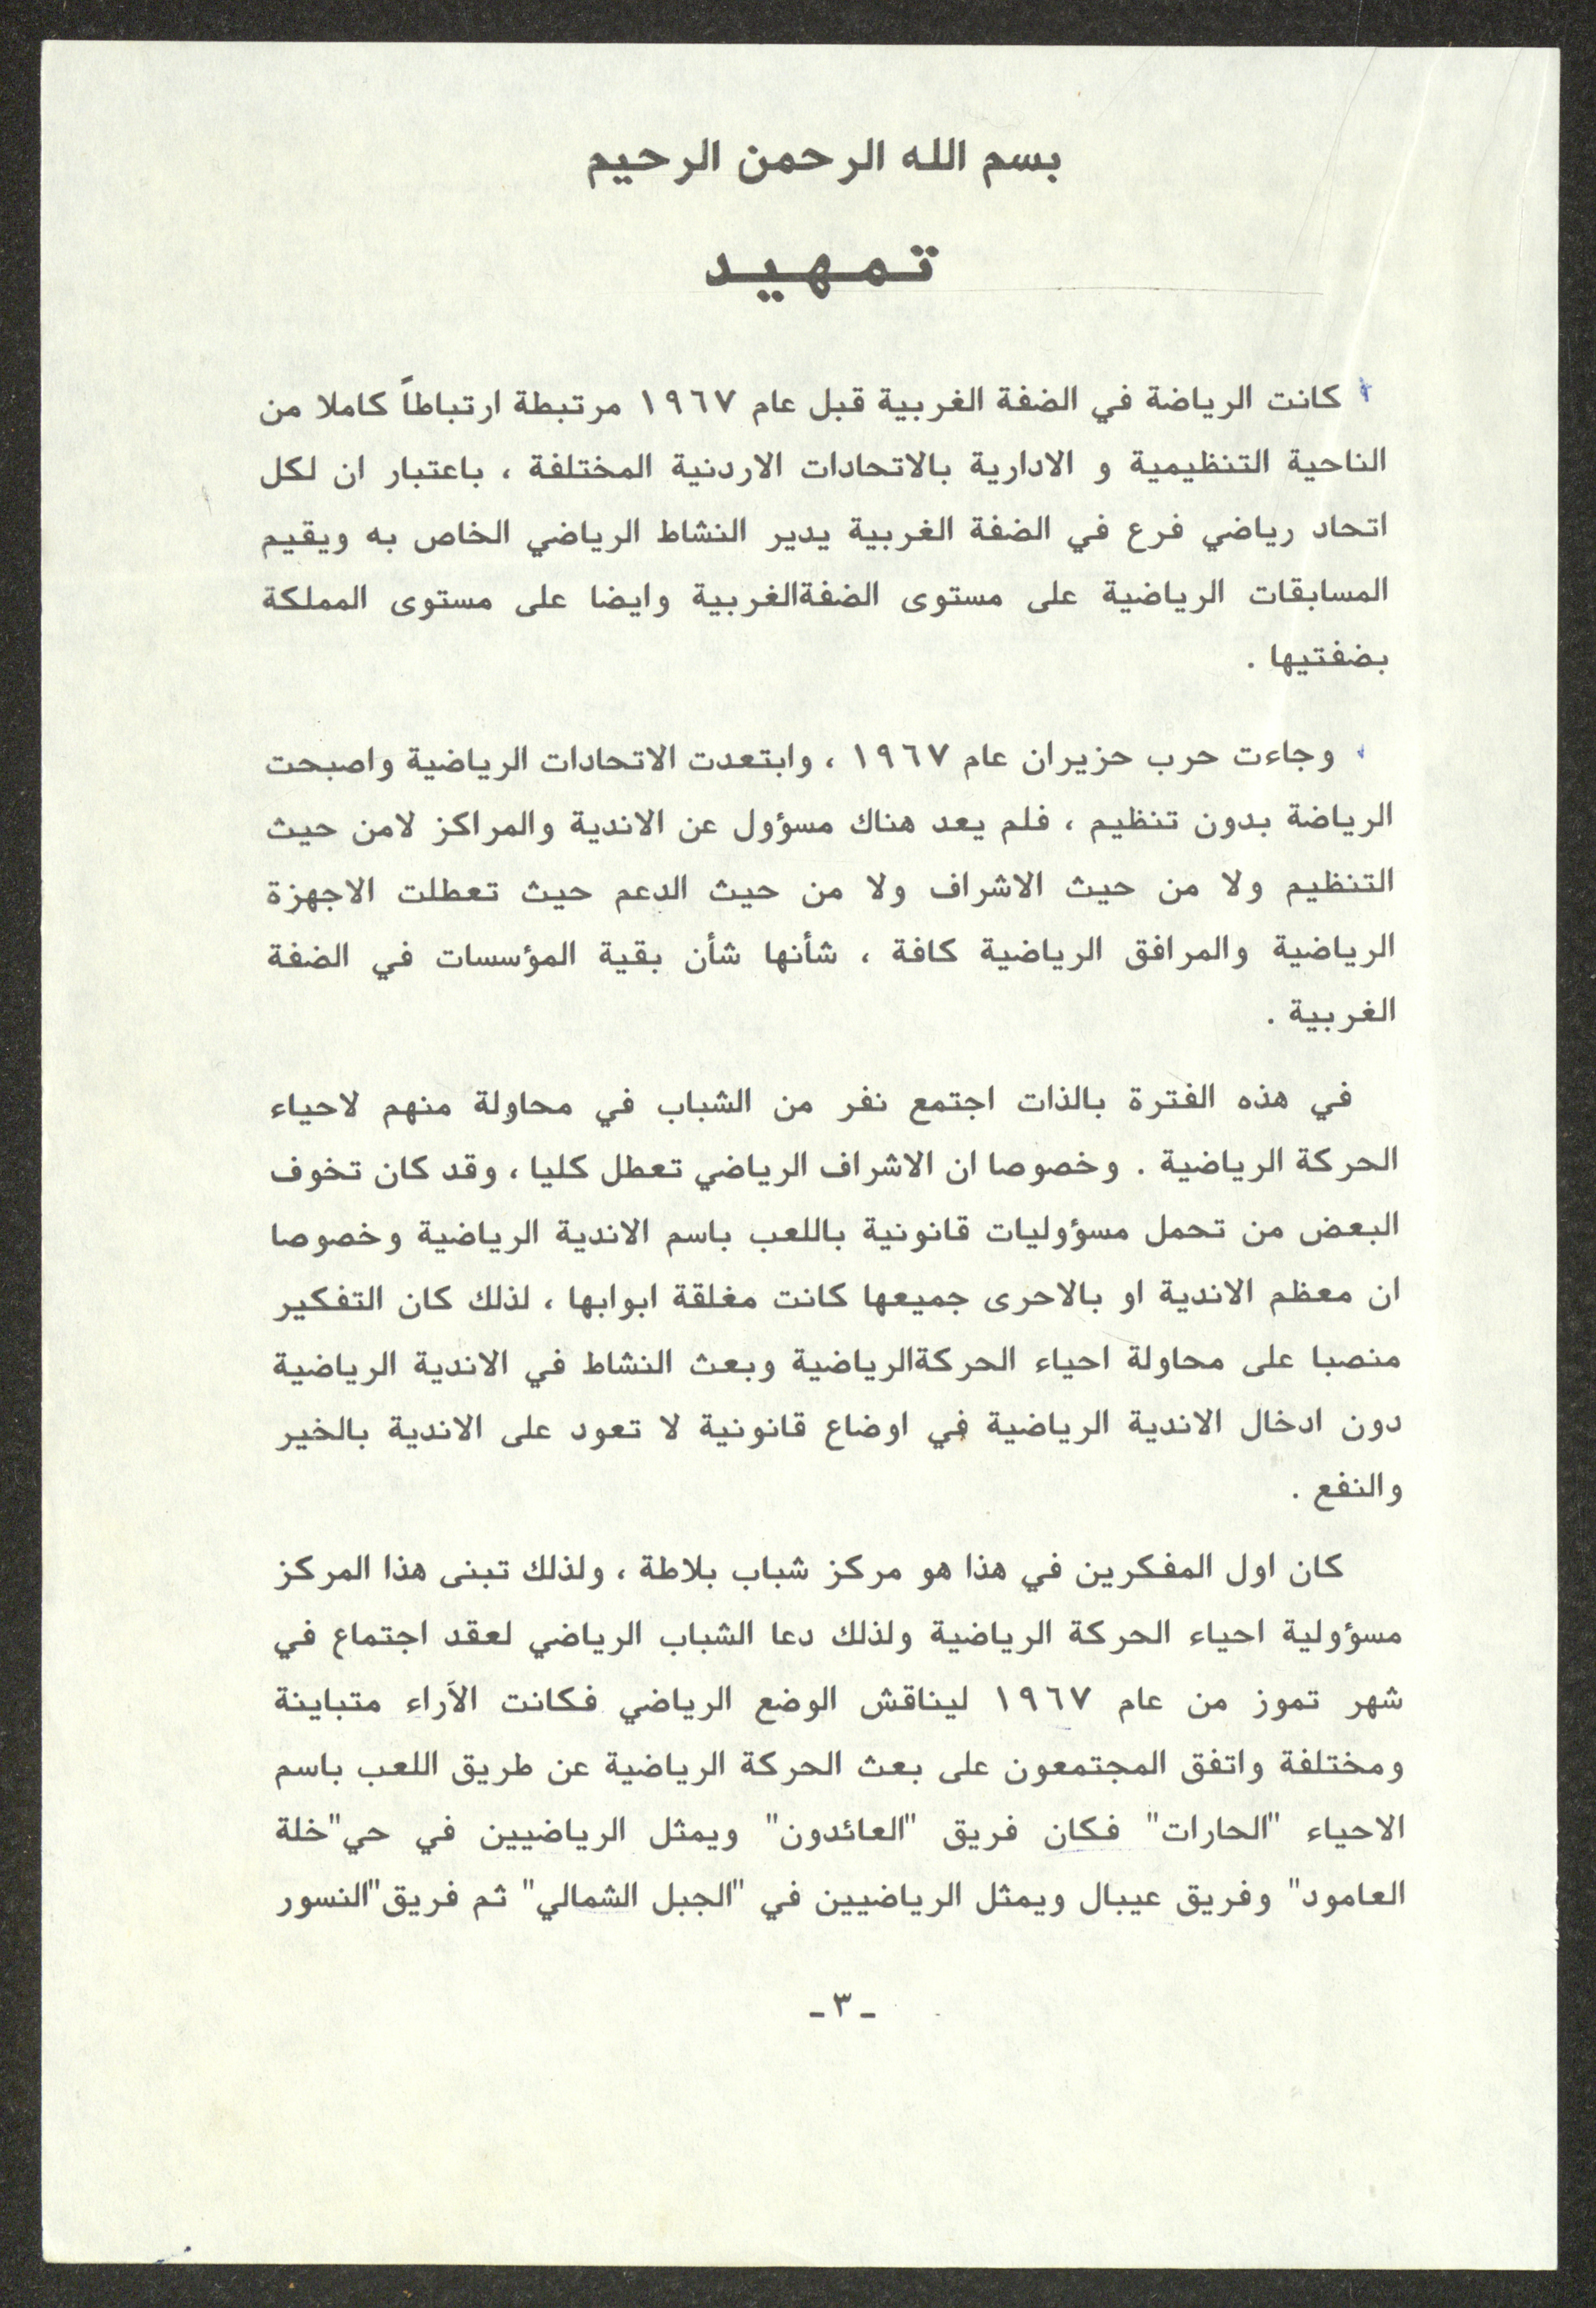 بسم الله الرحمن الرحيم
تمهيد
كانت الرياضة في الضفة الغربية قبل عام ١٩٦٧ مرتبطة ارتباطاً كاملا من
الناحية التنظيمية و الادارية بالاتحادات الاردنية المختلفة ، باعتبار ان لكل
اتحاد رياضي فرع في الضفة الغربية يدير النشاط الرياضي الخاص به ويقيم
المسابقات الرياضية على مستوى الضفةالغربية وايضا على مستوى المملكة
بضفتيها .
وجاءت حرب حزيران عام ١٩٦٧ ، وابتعدت الاتحادات الرياضية واصبحت
الرياضة بدون تنظيم ، فلم يعد هناك مسؤول عن الاندية والمراكز لامن حيث
التنظيم ولا من حيث الاشراف ولا من حيث الدعم حيث تعطلت الاجهزة
الرياضية والمرافق الرياضية كافة ، شأنها شأن بقية المؤسسات في الضفة
الغربية .
في هذه الفترة بالذات اجتمع نفر من الشباب في محاولة منهم لاحياء
الحركة الرياضية . وخصوصا ان الاشراف الرياضي تعطل كليا ، وقد كان تخوف
البعض من تحمل مسؤوليات قانونية باللعب باسم الاندية الرياضية وخصوصا
ان معظم الاندية او بالاحرى جميعها كانت مغلقة ابوابها ، لذلك كان التفكير
منصبا على محاولة احياء الحركةالرياضية وبعث النشاط في الاندية الرياضية
دون ادخال الاندية الرياضية في اوضاع قانونية لا تعود على الاندية بالخير
والنفع .
كان اول المفكرين في هذا هو مركز شباب بلاطة ، ولذلك تبنى هذا المركز
مسؤولية احياء الحركة الرياضية ولذلك دعا الشباب الرياضي لعقد اجتماع في
شهر تموز من عام ١٩٦٧ ليناقش الوضع الرياضي فكانت الآراء متباينة
ومختلفة واتفق المجتمعون على بعث الحركة الرياضية عن طريق اللعب باسم
الاحياء "الحارات" فكان فريق "العائدون" ويمثل الرياضيين في حي"خلة
العامود" وفريق عيبال ويمثل الرياضيين في "الجبل الشمالي" ثم فريق"النسور
ـ ٣ ـ